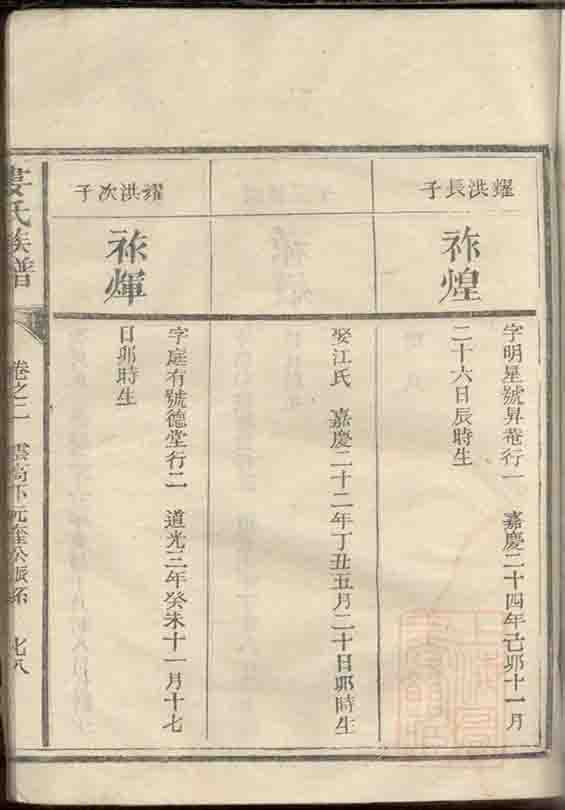 耀洪長子
祚煌
字明星號昇菴行一　嘉慶二十四年己卯十一月
二十六日辰時生
娶江氏　嘉慶二十二年丁丑五月二十日卯時生
耀洪次子
祿煇
字庭有號德堂行二　道光三年癸未十一月十七
日卯時生
氏族譜
卷之二　雲高下元奎公派系　七八